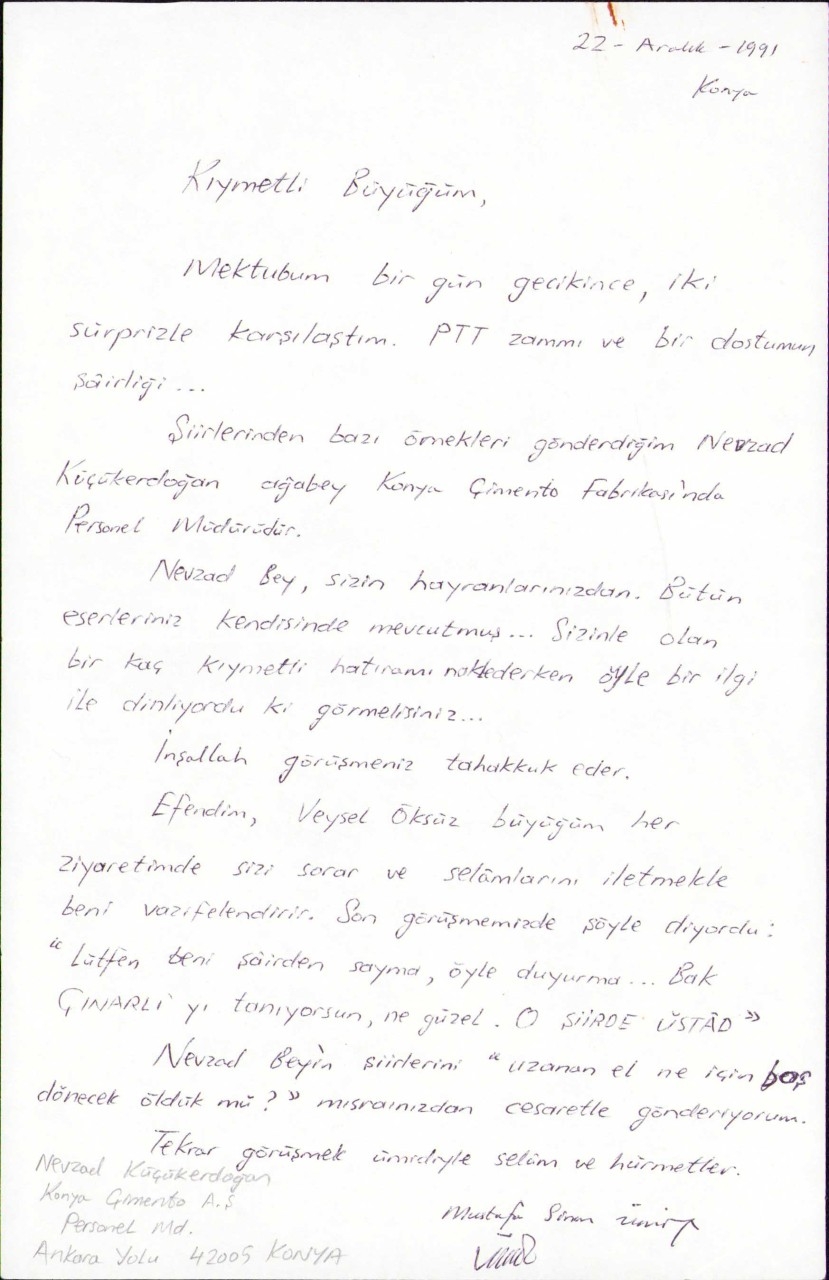 22 - Aralık - 1991
Konya
Kıymetli Büyüğüm,
Mektubum bir gün gecikince, iki
sürprizle karşılaştım. PTT zammı ve bir dostumun
şâirliği...
Şiirlerinden bazı örnekleri gönderdiğim Nevzad
Küçükerdoğan ağabey Konya Çimento Fabrikası'nda
Personel Müdürüdür.
Nevzad Bey, sizin hayranlarınızdan. Bütün
eserleriniz kendisinde mevcutmuş... Sizinle olan
bir kaç kıymetli hatıramı naklederken öyle bir ilgi
ile dinliyordu ki görmelisiniz...
İnşallah görüşmeniz tahakkuk eder.
Efendim, Veysel Öksüz büyüğüm her
ziyaretimde sizi sorar ve selâmlarını iletmekle
beni vazifelendirir. Son görüşmemizde şöyle diyordu:
"Lütfen beni şâirden sayma, öyle duyurma... Bak
ÇINARLI'yı tanıyorsun, ne güzel. O ŞİİRDE ÜSTÂD"
Nevzad Bey'in şiirlerini "uzanan el ne için boş
dönecek öldük mü?" mısraınızdan cesaretle gönderiyorum.
Tekrar görüşmek ümidiyle selâm ve hürmetler.
Nevzad Küçükerdoğan
Konya Çimento A.Ş
Personel Md.
Ankara Yolu 42005 KONYA
Mustafa Sinan